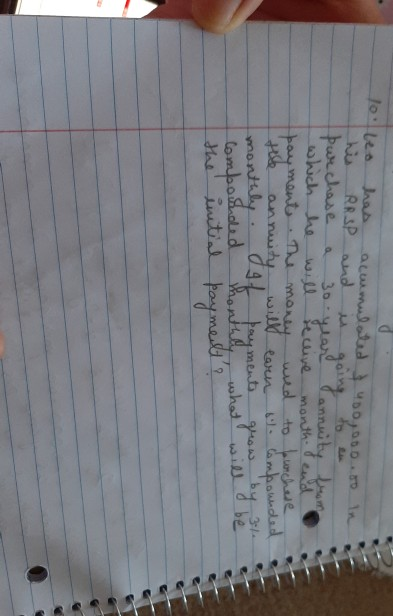 10. Leo has accumulated $ 400,000.00 in
his RRSP and is going to
purchase a 30-year annuity from
which he will receive month-end
payments. The money used to purchase
the annuity will earn 6% compounded
monthly. If payments grow by 3%
compounded monthly, what will be
the initial payment?